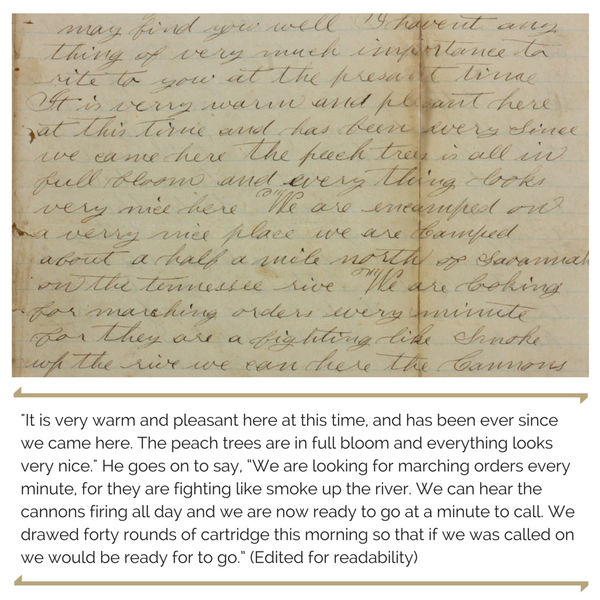 may find you well I havent any
thing of very much importance to
rite to you at the presant time
It is verry warm and plesant here
at this time and has been every since
we came here the peech trees is all in
full bloom and every thing looks
very nice here We are encamped on
a verry nice place we are Camped
about a half a mile north of Savannah
on the tennessee rive We are looking
for marching orders every minute
for they are a fighting like Smoke
up the rive we can here the Cannons
"It is very warm and pleasant here at this time, and has been ever since
we came here. The peach trees are in full bloom and everything looks
very nice." He goes on to say, "We are looking for marching orders every
minute, for they are fighting like smoke up the river. We can hear the
cannons firing all day and we are now ready to go at a minute to call. We
drawed forty rounds of cartridge this morning so that if we was called on
we would be ready for to go." (Edited for readability)